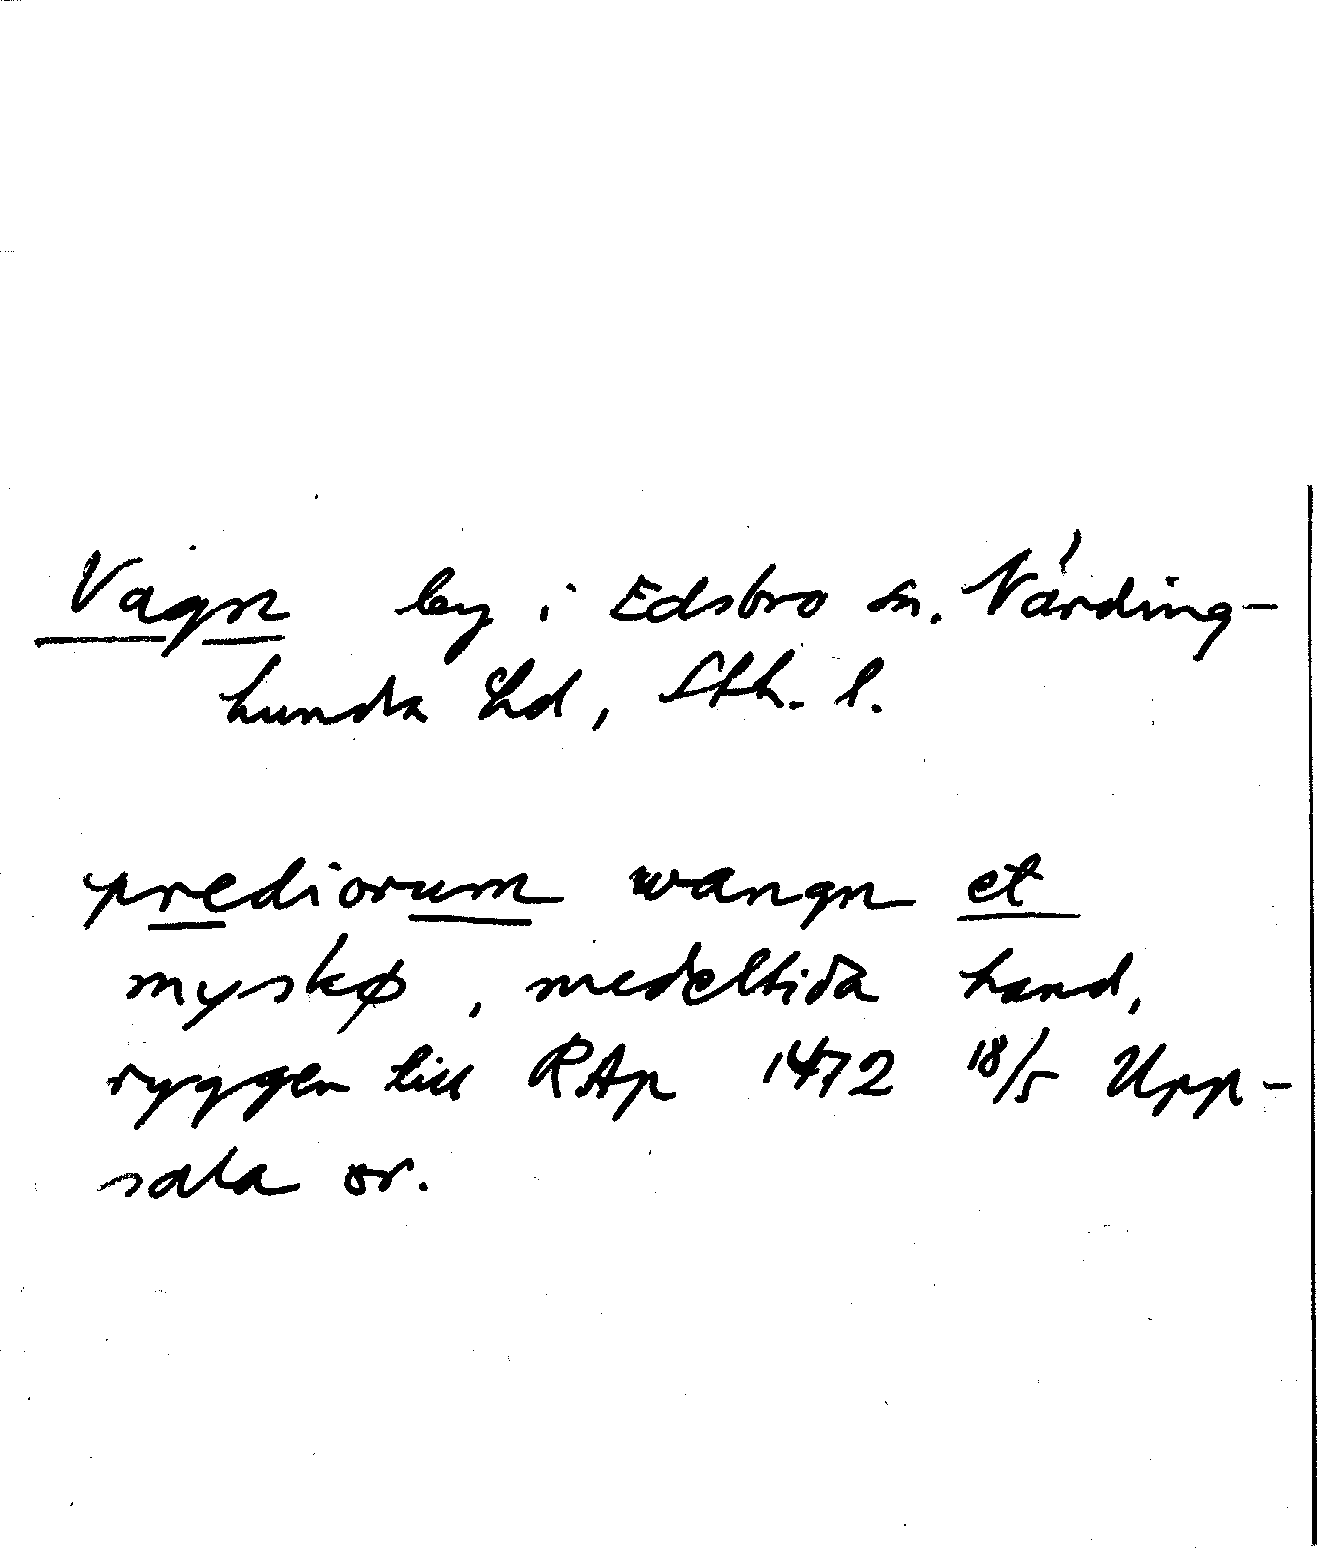 Vagn by i Edsbro sn. Närding-
hunda hd, Sth. l.
prediorum wangn et
myskø, medeltida hand,
ryggen till RAp 1472 18/5 Upp-
sala or.